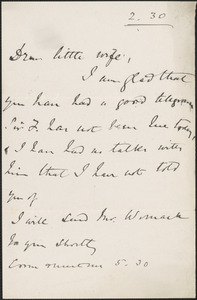 2.30
Dear little wife,
I am glad that
you have had a good telegram
Sir F. has not been here today,
& I have had no talks with
him that I have not told
you of
I will send Mr. Womack
to you shortly
5.30